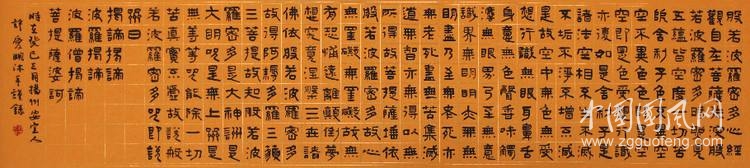 般若波羅密多心經
觀自在菩薩行深般
若波羅密多時照見
五蘊皆空度一切苦
厄舍利子色不異空
空不異色色即是空
空即是色受想行識
亦復如是舍利子是
諸法空相不生不滅
不垢不淨不增不減
是故空中無色無受
想行識無眼耳鼻舌
身意無色聲香味觸
法無眼界乃至無意
識界無無明亦無無
明盡乃至無老死亦
無老死盡無苦集滅
道無智亦無得以無
所得故菩提薩埵依
般若波羅密多故心
無罣礙無罣礙故無
有恐怖遠離顛倒夢
想究竟涅槃三世諸
佛依般若波羅密多
故得阿耨多羅三藐
三菩提故知般若波
羅密多是大神咒是
大明咒是無上咒是
無等等咒能除一切
苦真實不虛故說般
若波羅密多咒即說
咒曰
揭諦揭諦
波羅揭諦
波羅僧揭諦
菩提薩婆訶
時在癸巳三月揚州安宜人
許愛明沐手謹錄
中国国风网
www.zgguofeng.com